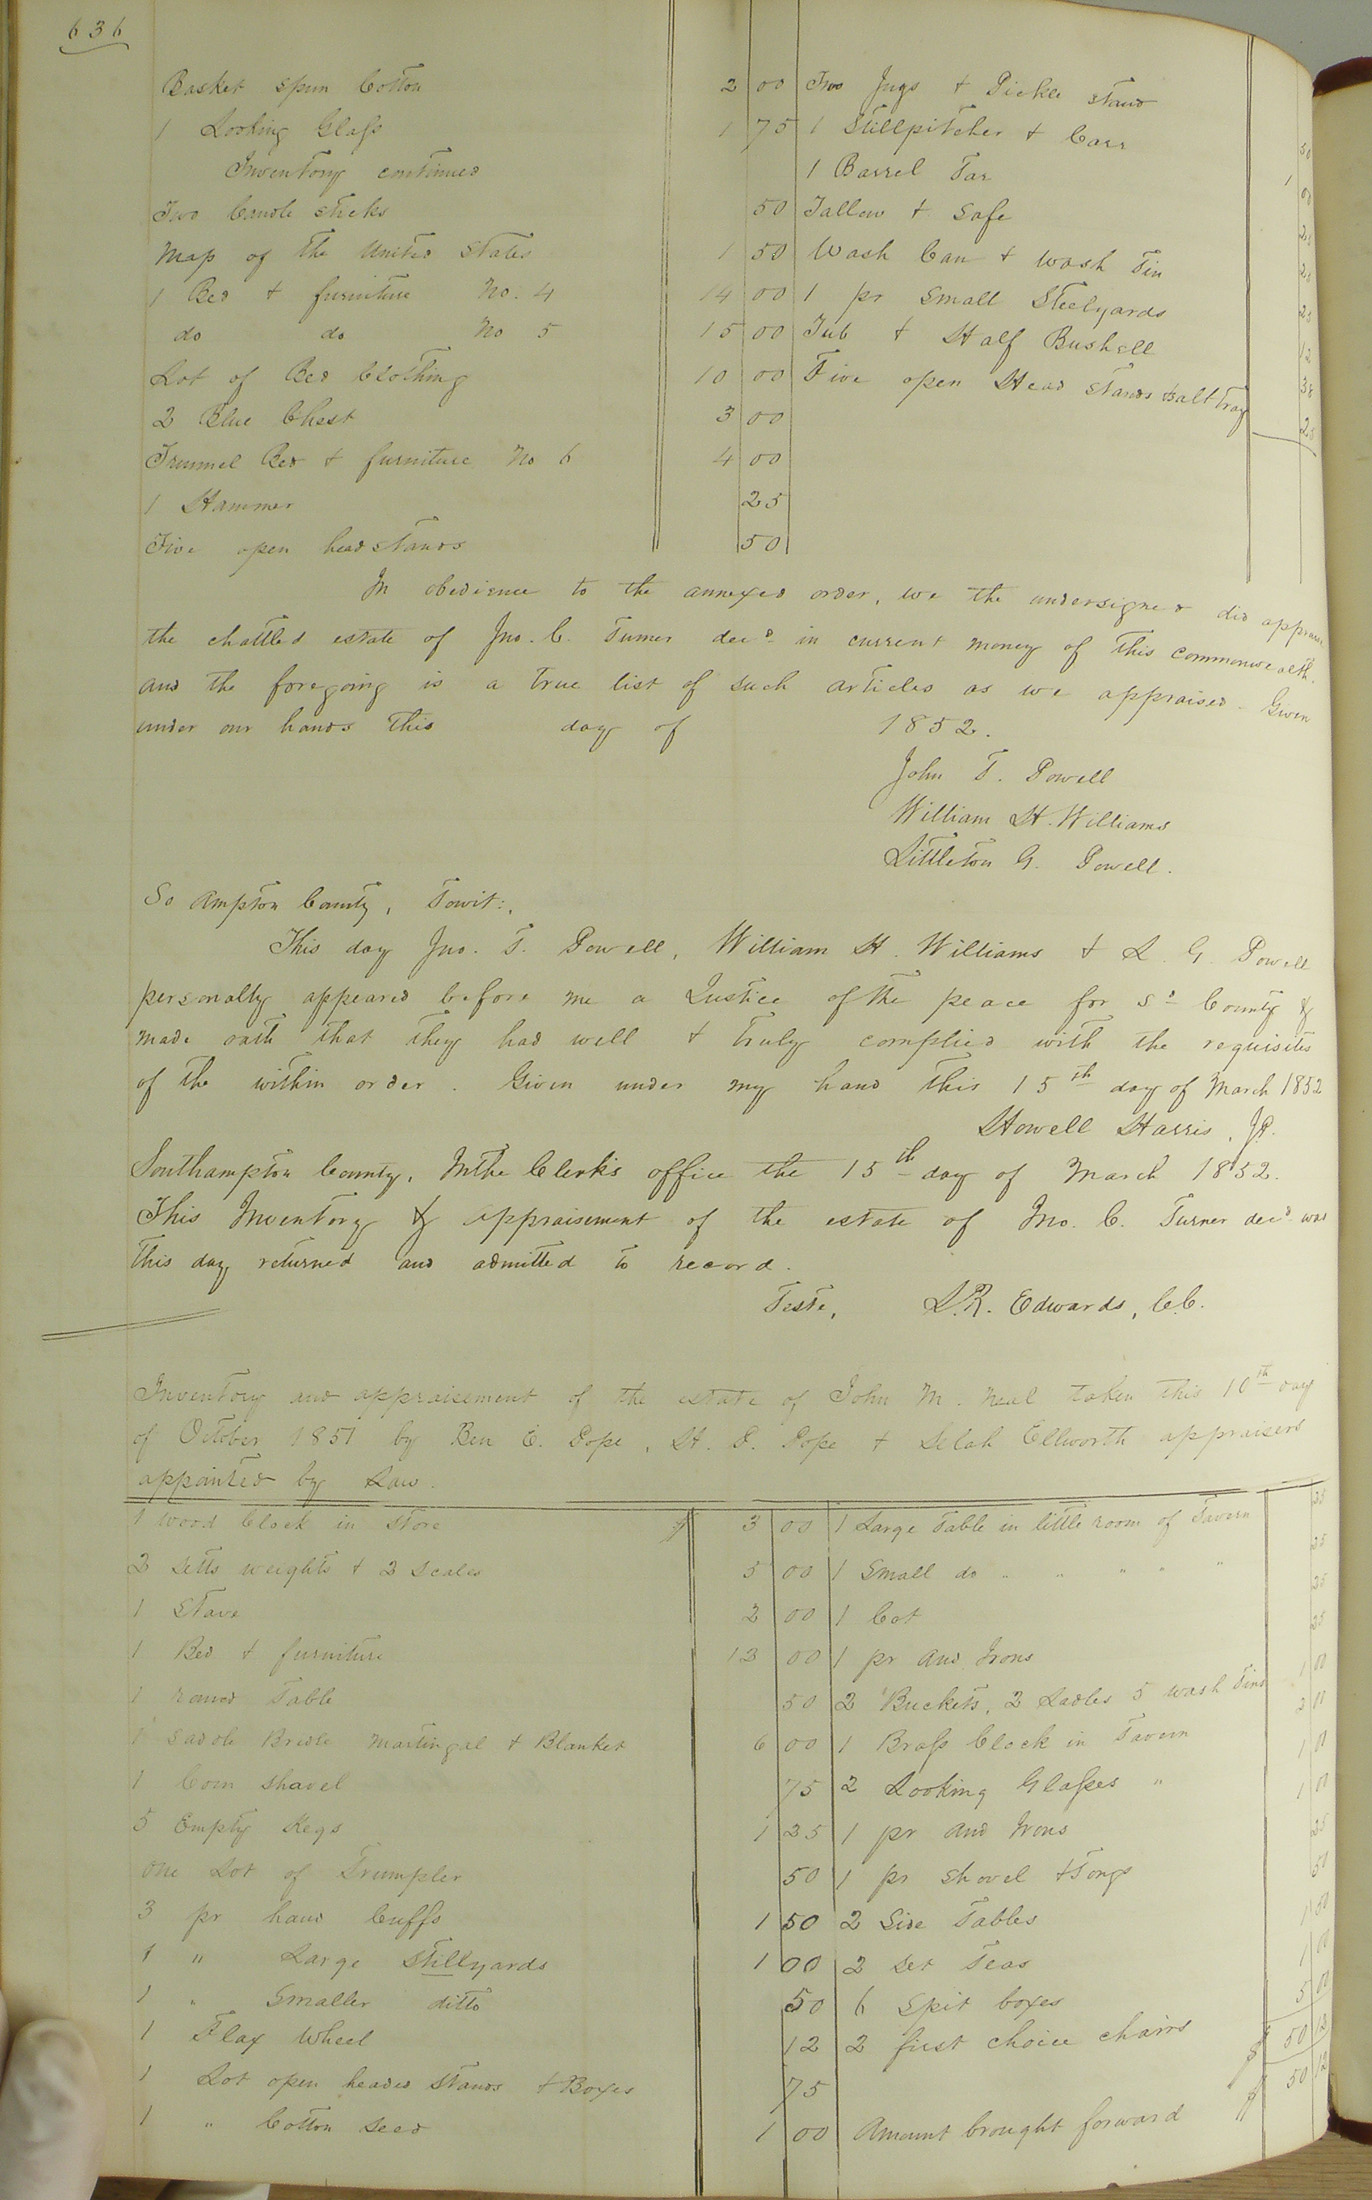 636
Basket spun Cotton 2 00
1 Looking Glass 1 75
Inventory continued
Two Candle sticks 50
Map of the United States 1 50
1 Bed & furniture No. 4 14 00
do do No 5 15 00
Lot of Bed Clothing 10 00
2 Blue Chest 3 00
Trummel Bed & furniture No 6 4 00
1 Hammer 25
Five open head stands 50
Two Jugs & Pickle stand 50
1 Stillpitcher & Carr 1 00
1 Barrel Tar
Tallow & Safe
Wash Can & wash Tin
1 pr small Steelyards
Tub & Half Bushell
Five open Head stands
In obedience to the annexed order, we the undersigned did appraise
the chattled estate of Jno. C. Turner decd in current money of this commonwealth.
and the foregoing is a true list of such articles as we appraised - Given
under our hands this day of 1852.
John T. Powell
William H. Williams
Littleton G. Powell.
So Ampton County, Towit:,
This day Jno. T. Powell, William H. Williams & L. G. Powell
personally appeared before me a Justice of the peace for sd County &
made oath that they had well & truly complied with the requisites
of the within order. Given under my hand this 15th day of March 1852
Howell Harris, JP.
Southampton County, In the Clerk's office the 15th day of March 1852.
This Inventory & appraisement of the estate of Jno. C. Turner decd was
this day returned and admitted to record.
Teste, L.R. Edwards, C.C.
Inventory and appraisement of the estate of John M. Neal taken this 10th day
of October 1851 by Ben E. Pope, H. D. Pope & Selah Ellworth appraisers
appointed by Law.
1 wood Clock in store $ 3 00
2 Setts weights & 2 Scales 5 00
1 Stave 2 00
1 Bed & furniture 12 00
1 round Table 50
1 Saddle Bridle Martingal & Blanket 6 00
1 Corn shavel 75
5 Empty Kegs 1 25
One Lot of Trumpler 50
3 pr hand Cuffs 1 50
1 " Large Stillyards 1 00
1 " Smaller ditto 50
1 Flax Wheel 12
1 Lot open headed stands & Boxes 75
1 " Cotton Seed 1 00
1 Large Table in little room of Tavern 25
1 Small do " " " " " 25
1 Cot 25
1 pr And Irons 25
2 Buckets, 2 Ladles 5 wash Tins 1 00
1 Brass Clock in Tavern 2 00
2 Looking Glasses " 1 00
1 pr And Irons 1 00
1 pr shovel & Tongs 25
2 Side Tables 50
2 Set Teas 1 50
6 Spit boxes 1 00
2 first choice chairs 5 00
$ 50 12
Amount brought forward $ 50 12